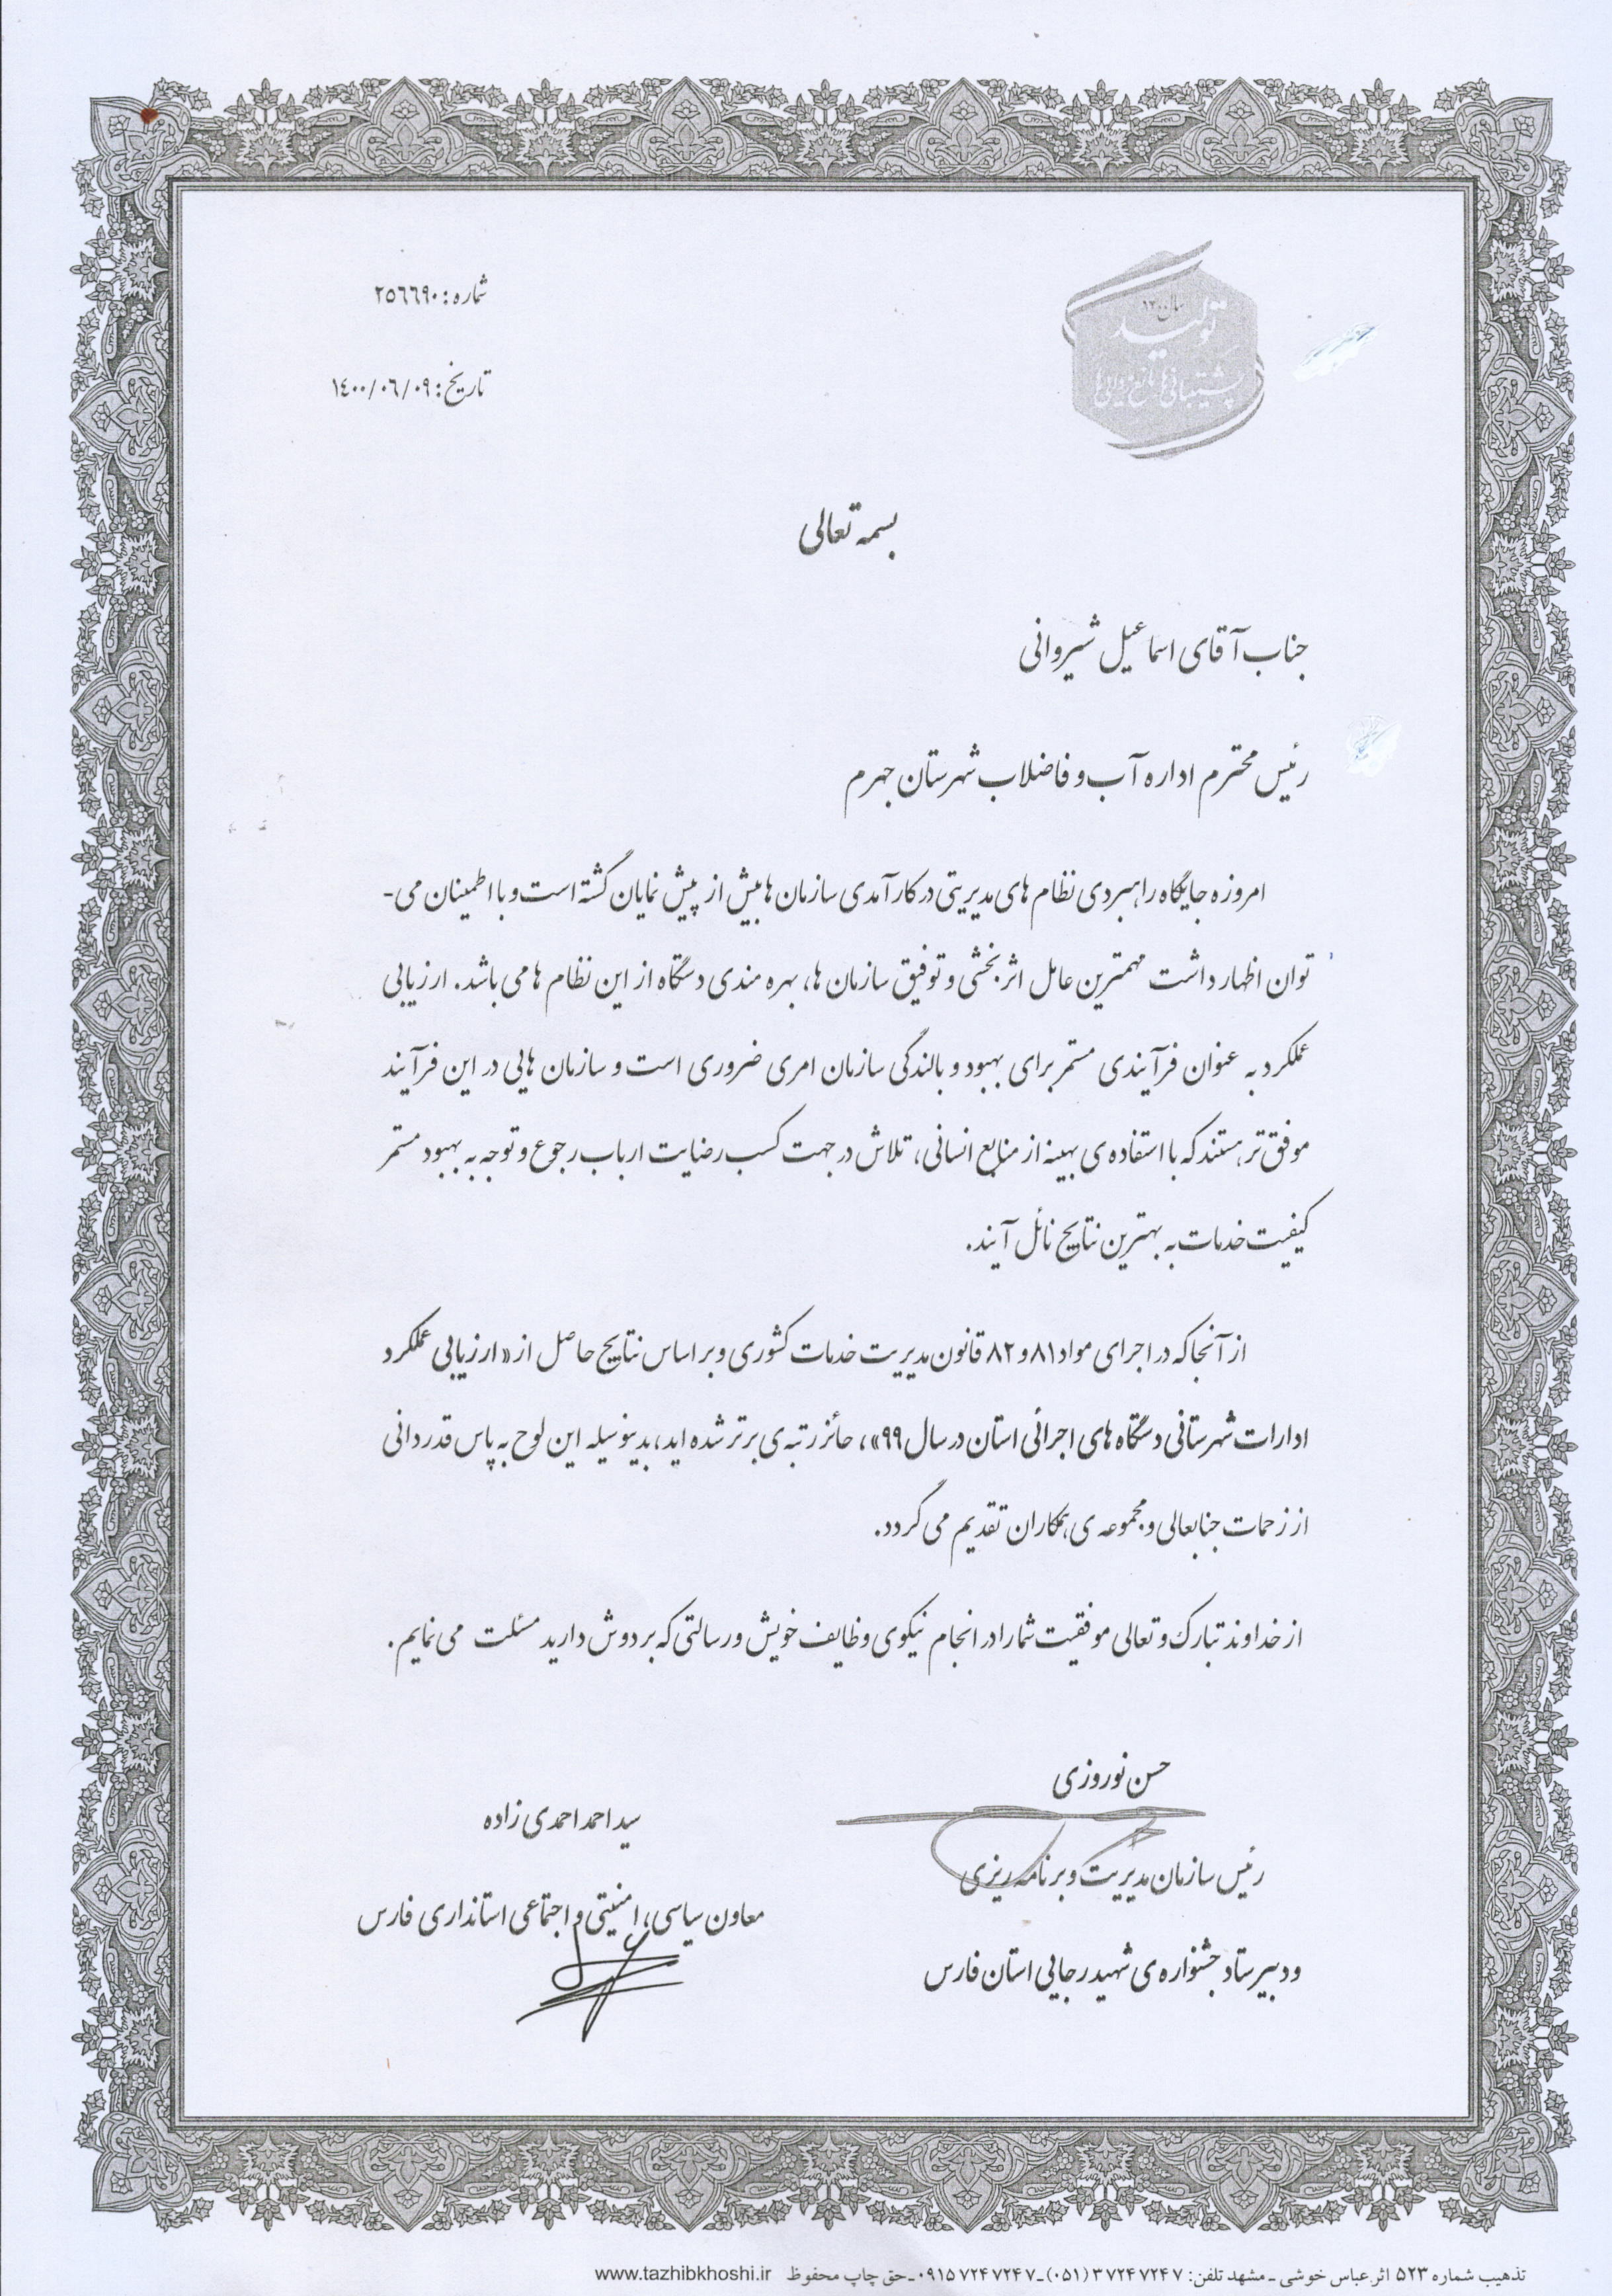 شماره: ۲۵٦٦۹۰
تاریخ: ۱٤۰۰/۰٦/۰۹
سال ۱۴۰۰
تولید
پشتیبانی‌ها مانع‌زدایی‌ها
بسمه تعالی
جناب آقای اسماعیل شیروانی
رئیس محترم اداره آب و فاضلاب شهرستان جهرم
امروزه جایگاه راهبردی نظام های مدیریتی در کارآمدی سازمان ها بیش از پیش نمایان گشته است و با اطمینان می-
توان اظهار داشت مهمترین عامل اثر بخشی و توفیق سازمان ها، بهره مندی دستگاه از این نظام ها می باشد. ارزیابی
عملکرد به عنوان فرآیندی مستمر برای بهبود و بالندگی سازمان امری ضروری است و سازمان هایی در این فرآیند
موفق تر هستند که با استفاده ی بهینه از منابع انسانی، تلاش در جهت کسب رضایت ارباب رجوع و توجه به بهبود مستمر
کیفیت خدمات به بهترین نتایج نائل آیند.
از آنجا که در اجرای مواد ۸۱ و ۸۲ قانون مدیریت خدمات کشوری و بر اساس نتایج حاصل از «ارزیابی عملکرد
ادارات شهرستانی دستگاه های اجرائی استان در سال ۹۹»، حائز رتبه ی برتر شده اید، بدینوسیله این لوح به پاس قدردانی
از زحمات جنابعالی و مجموعه ی همکاران تقدیم می گردد.
از خداوند تبارک و تعالی موفقیت شما را در انجام نیکوی وظایف خویش و رسالتی که بر دوش دارید مسئلت می نمایم.
حسن نوروزی
رئیس سازمان مدیریت و برنامه ریزی
و دبیر ستاد جشنواره ی شهید رجایی استان فارس
سید احمد احمدی زاده
معاون سیاسی، امنیتی و اجتماعی استانداری فارس
تذهیب شماره ۵۲۳ اثر عباس خوشی ـ مشهد تلفن: ۳۷۲۴۷۲۴۷ (۰۵۱) ـ ۰۹۱۵۷۲۴۷۲۴۷ ـ حق چاپ محفوظ www.tazhibkhoshi.ir